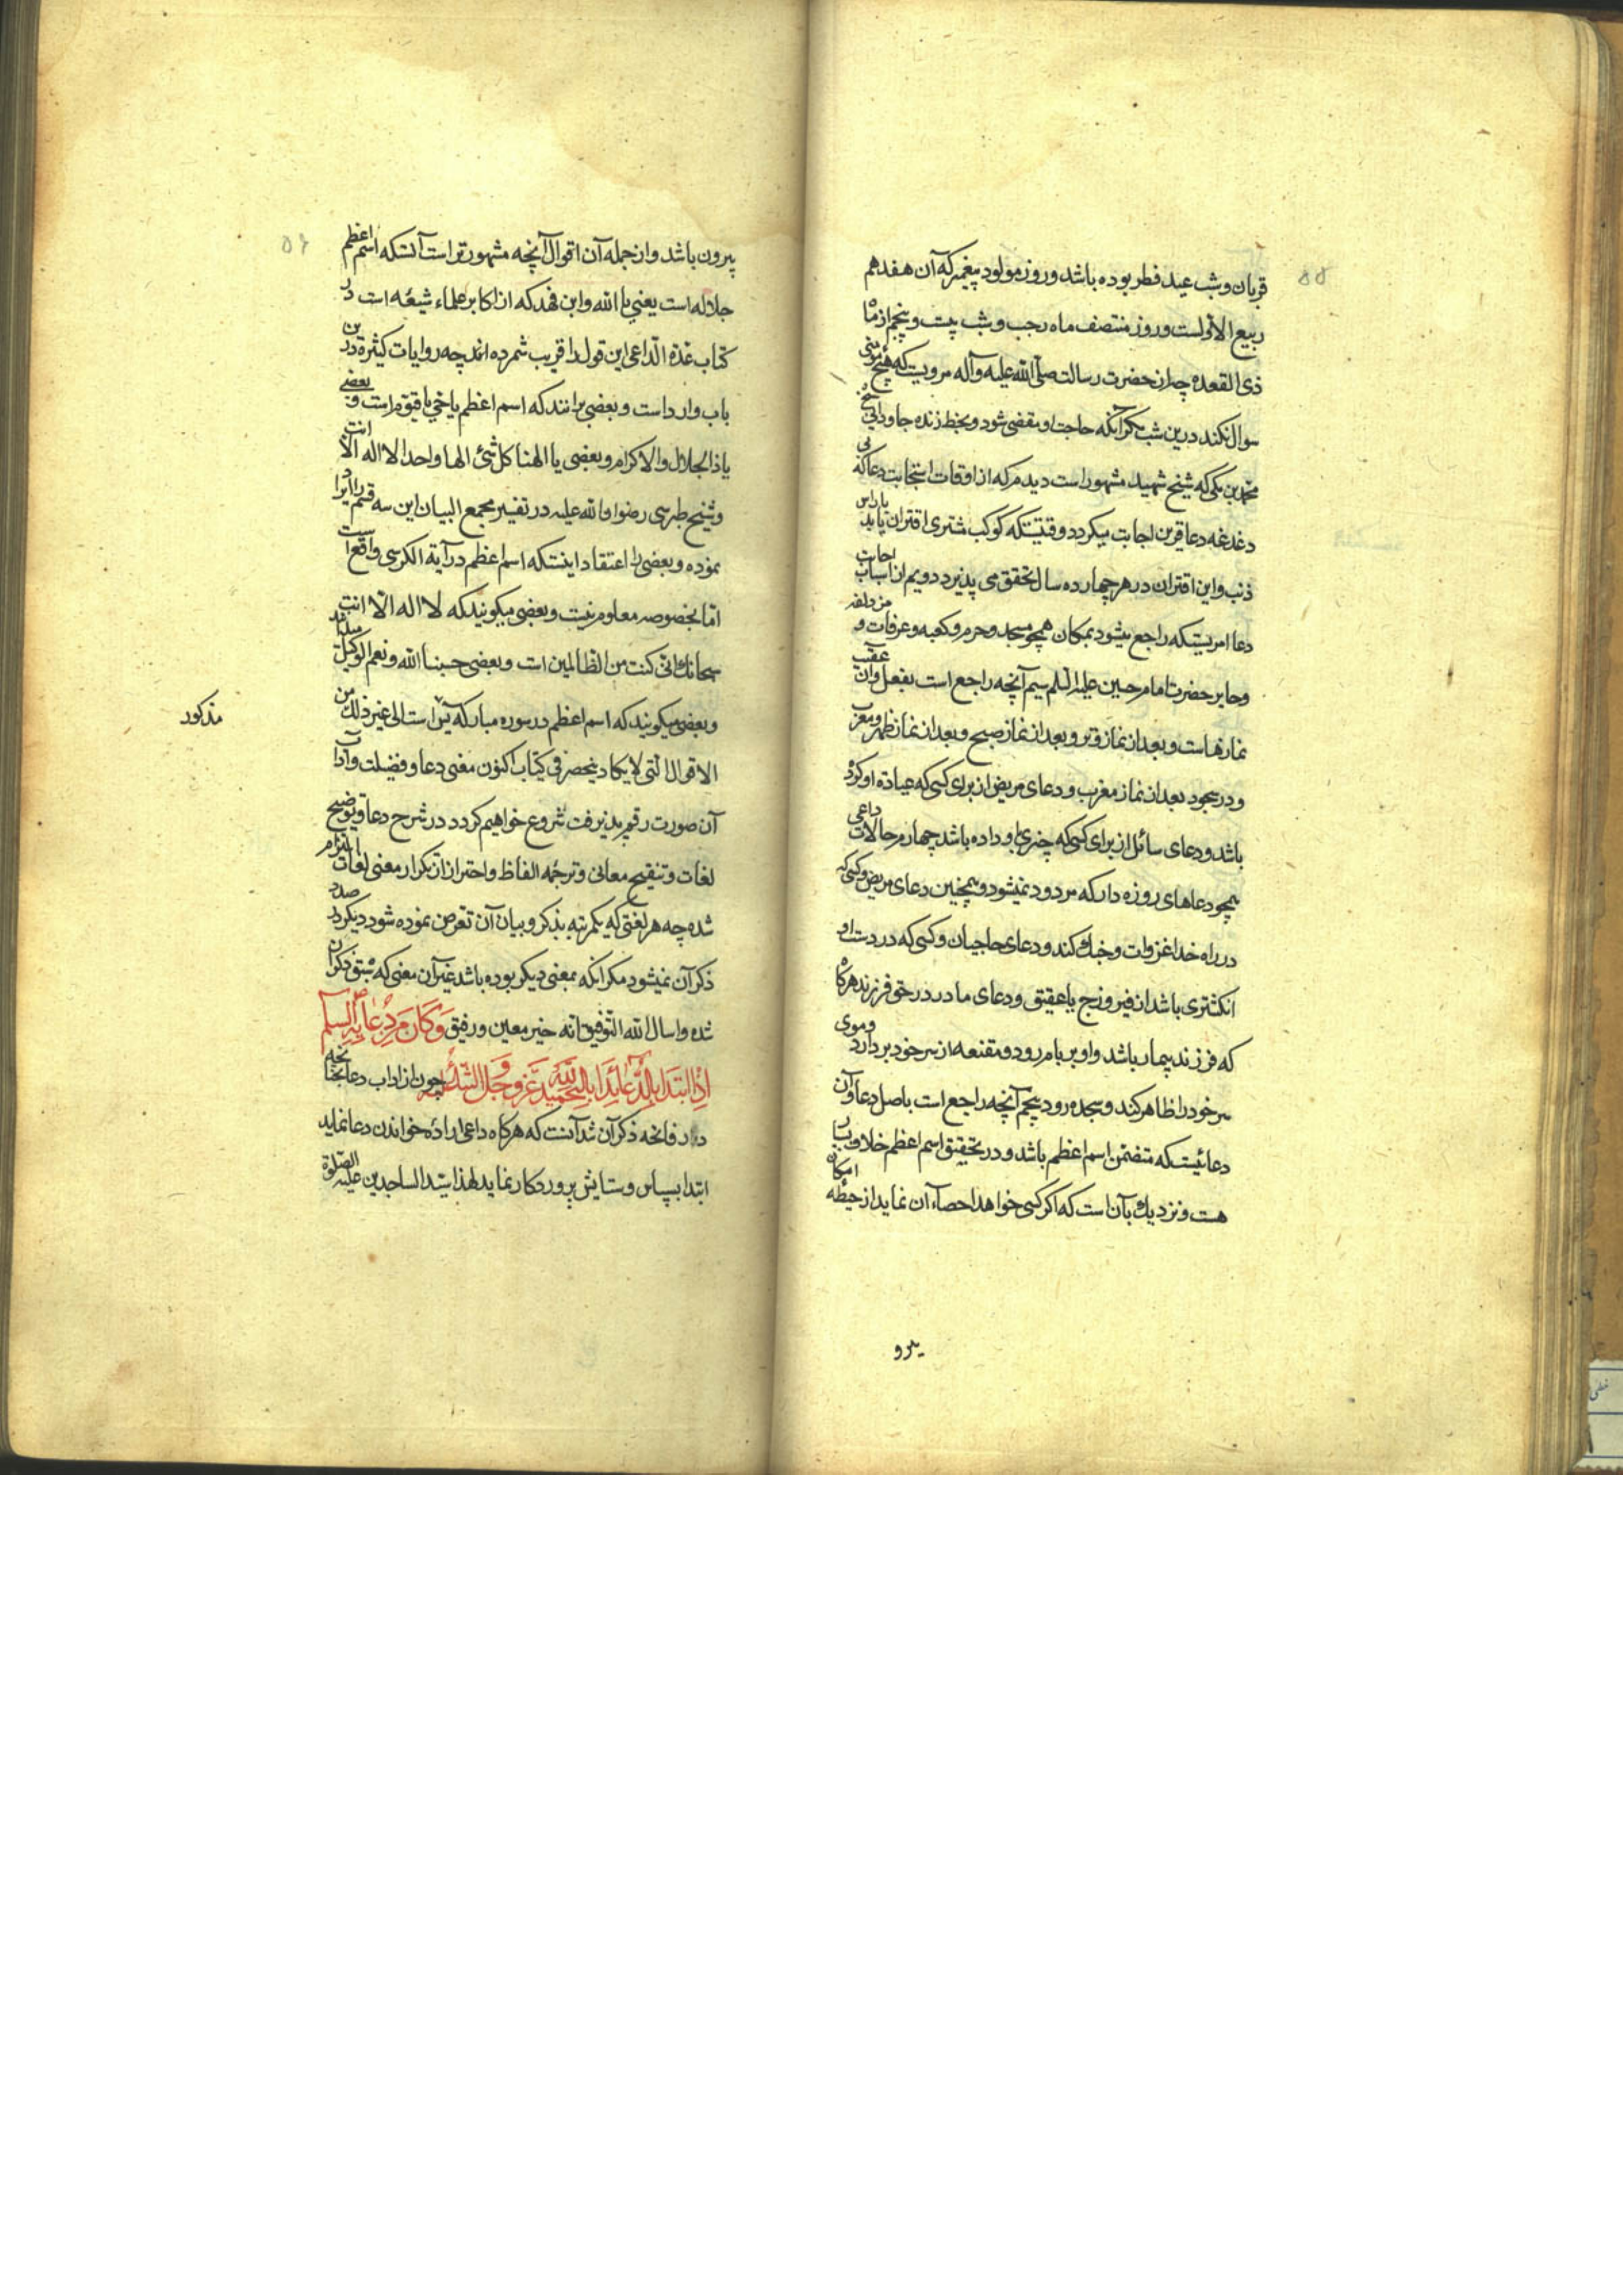 ۵۵
قربان و شب عید فطر بوده باشد و روز مولود پیغمبر که آن هفدهم
ربیع الاولست و روز منتصف ماه رجب و شب بیست و پنجم از ماه
ذی القعده چه از حضرت رسالت صلی الله علیه وآله مرویست که هیچ مؤمنی
سوال نکند درین شب مکر آنکه حاجت او مقضی شود و بخط زنده جاودانی شیخ
محمد بن مکی که شیخ شهید مشهور است دیدم که از اوقات استجابت دعا که بی
دغدغه دعا قرین اجابت میکردد وقتیستکه کوکب مشتری اقتران یابد باراس
ذنب و این اقتران در هر چهارده سال تحقق می پذیرد دویم از اسباب اجابت
دعا امریستکه راجع میشود بمکان همچو مسجد و حرم و کعبه و عرفات و مزدلفه
و حایر حضرت امام حسین علیه السلم سیم آنچه راجع است بفعل وآن عقب
نمازهاست و بعد از نماز وتر و بعد از نماز صبح و بعد از نماز ظهر و مغرب
و در سجود بعد از نماز مغرب و دعای مریض از برای کسی که عیادة او کرده
باشد و دعای سائل از برای کسی که چیزی باو داده باشد چهارم حالات داعی
همچو دعاهای روزه دار که مردود نمیشود و همچنین دعای مریض و کسی که
در راه خدا غزوات و جنک کند و دعای حاجیان و کسی که در دست او
انکشتری باشد از فیروزج یا عقیق و دعای مادر در حق فرزند هرکاه
که فرزند بیمار باشد و او بر بام رود و مقنعه از سر خود بردارد و موی
سر خود را ظاهر کند و سجده رود پنجم آنچه راجع است باصل دعا وآن
دعائیست که متضمن اسم اعظم باشد و در تحقیق اسم اعظم خلاف بسیار
هست و نزدیک بآن است که اکر کسی خواهد احصاء آن نماید از حیطه امکان
بیرو
۵۶
بیرون باشد و از جمله آن اقوال آنچه مشهورتر است آنستکه اسم اعظم
جلاله است یعنی یا الله و ابن فهد که از اکابر علماء شیعه است در
کتاب عدة الداعی این قول را قریب شمرده اند چه روایات کثیرة درین
باب وارد است و بعضی برانند که اسم اعظم یا حی یا قیوم است و بعضی
یا ذا الجلال والاکرام و بعضی یا الهنا کل شئ الها واحدا لا اله الا انت
و شیخ طبرسی رضوان الله علیه در تفسیر مجمع البیان این سه قسم را ایراد
نموده و بعضی را اعتقاد اینستکه اسم اعظم در آیة الکرسی واقع است
اما بخصوصه معلوم نیست و بعضی میکویند که لا اله الا انت
سبحانک انی کنت من الظالمین است و بعضی حسبنا الله و نعم الوکیل میدانند
و بعضی میکویند که اسم اعظم در سوره مبارکه یس است الی غیر ذلک من
الاقوال التی لا یکاد ینحصر فی کتاب اکنون معنی دعا و فضیلت و آداب
مذکور
آن صورت رقم پذیرفت شروع خواهیم کردد در شرح دعا و توضیح
لغات و تنقیح معانی و ترجمه الفاظ و احتراز از تکرار معنی لغات التزام
شده چه هر لغتی که یکمرتبه بذکر و بیان آن تعرض نموده شود دیکر در صدد
ذکر آن نمیشود مکر آنکه بمعنی دیکر بوده باشد غیر آن معنی که سبق ذکر آن
شده واسال الله التوفیق انه خیر معین و رفیق وَکَانَ مِن دُعَائِه علیه السلم
اِذَا ابتَدَأ بِالدُّعَاءِ بَدَأ بِالتَّحمِیدِ لِلّٰه عَزَّ وَجَلَّ چون از اداب دعا چنانچه
در فاتحه ذکر آن شد آنست که هرکاه داعی اراده خواندن دعا نماید
ابتدا بسپاس و ستایش پروردکار نماید لهذا سید الساجدین علیه الصلوة